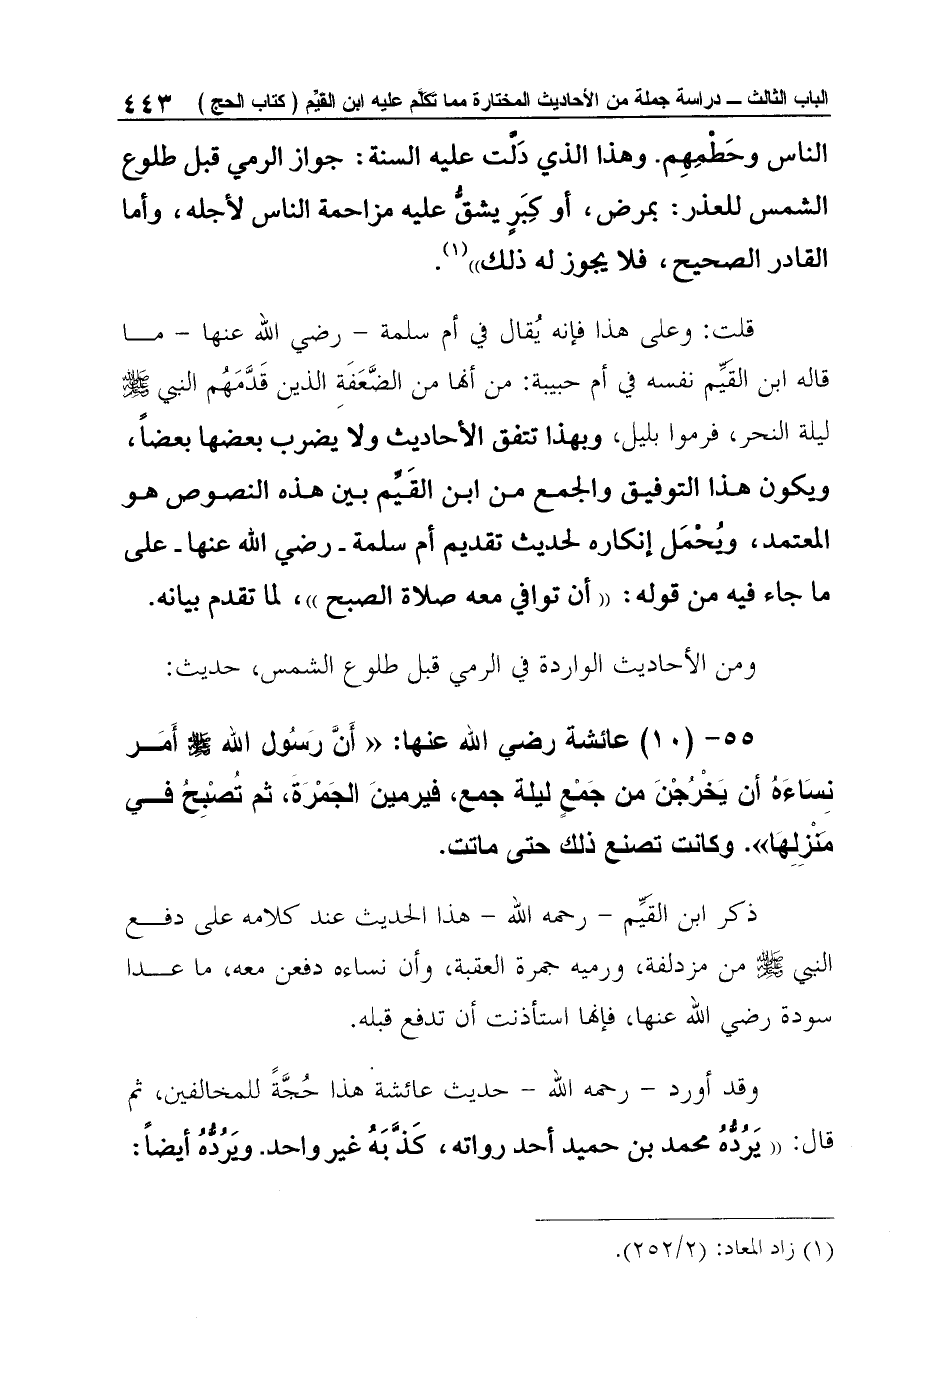 الباب الثالث ــ دراسة جملة من الأحاديث المختارة مما تكلَّم عليه ابن القيِّم ( كتاب الحج ) ٤٤٣
الناس وحَطْمِهِم. وهذا الذي دَلَّت عليه السنة: جواز الرمي قبل طلوع
الشمس للعذر: بمرض، أو كِبَرٍ يشقُّ عليه مزاحمة الناس لأجله، وأما
القادر الصحيح، فلا يجوز له ذلك»(١).
قلت: وعلى هذا فإنه يُقال في أم سلمة - رضي الله عنها - مـا
قاله ابن القَيِّم نفسه في أم حبيبة: من أنها من الضَّعَفَةِ الذين قَدَّمَهُم النبي ﷺ
ليلة النحر، فرموا بليل، وبهذا تتفق الأحاديث ولا يضرب بعضها بعضاً،
ويكون هـذا التوفيق والجمع مـن ابن القَيِّم بـين هـذه النصوص هـو
المعتمد، ويُحْمَل إنكاره لحديث تقديم أم سلمة ـ رضي الله عنها ـ على
ما جاء فيه من قوله: « أن توافي معه صلاة الصبح »، لما تقدم بيانه.
ومن الأحاديث الواردة في الرمي قبل طلوع الشمس، حديث:
٥٥- (١٠) عائشة رضي الله عنها: « أَنَّ رَسُول الله ﷺ أَمَـر
نِساءَهُ أن يَخْرُجْنَ من جَمْعٍ ليلة جمع، فيرمينَ الجَمْرَةَ، ثم تُصْبِحُ فـي
مَنْزِلِهَا». وكانت تصنع ذلك حتى ماتت.
ذكر ابن القَيِّم - رحمه الله - هذا الحديث عند كلامه على دفـع
النبي ﷺ من مزدلفة، ورميه جمرة العقبة، وأن نساءه دفعن معه، ما عـدا
سودة رضي الله عنها، فإنها استأذنت أن تدفع قبله.
وقد أورد - رحمه الله - حديث عائشة هذا حُجَّةً للمخالفين، ثم
قال: « يَرُدُّهُ محمد بن حميد أحد رواته، كَذَّبَهُ غير واحد. ويَرُدُّهُ أيضاً:
(١) زاد المعاد: (٢٥٢/٢).